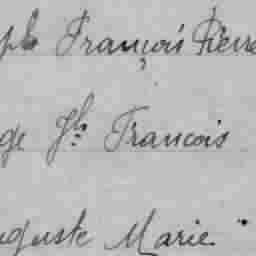 ph François Pierre
ge Jh Francois
uguste Marie